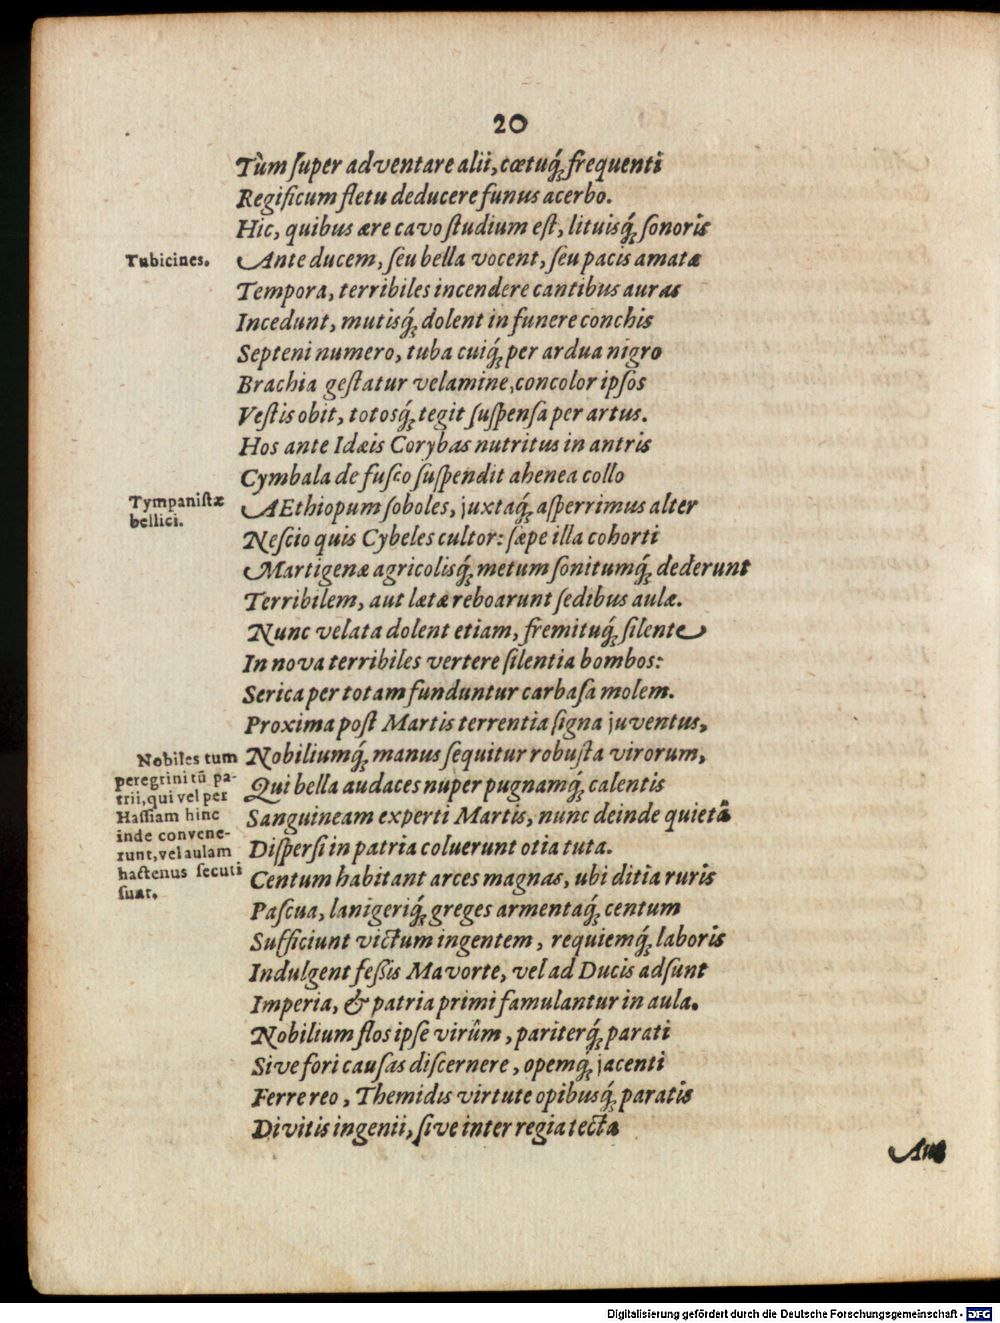 20
Tùm ſuper adventare alii, cœtuq́ꝫ frequenti
Regificum fletu deducere funus acerbo.
Hic, quibus ære cavo ſtudium eſt, lituisq́ꝫ ſonoris
Tubicines.
Ante ducem, ſeu bella vocent, ſeu pacis amatæ
Tempora, terribiles incendere cantibus auras
Incedunt, mutisq́ꝫ dolent in funere conchis
Septeni numero, tuba cuiq́ꝫ per ardua nigro
Brachia geſtatur velamine, concolor ipſos
Veſtis obit, totosq́ꝫ tegit ſuſpenſa per artus.
Hos ante Idæis Corybas nutritus in antris
Cymbala de fuſco ſuſpendit ahenea collo
Tympaniſtæ
bellici.
AEthiopum ſoboles, juxtaq́ꝫ aſperrimus alter
Neſcio quis Cybeles cultor: ſæpe illa cohorti
Martigenæ agricolisq́ꝫ metum ſonitumq́ꝫ dederunt
Terribilem, aut lætæ reboarunt ſedibus aulæ.
Nunc velata dolent etiam, fremituq́ꝫ ſilente
In nova terribiles vertere ſilentia bombos:
Serica per totam funduntur carbaſa molem.
Proxima poſt Martis terrentia ſigna juventus,
Nobiles tum
peregrini tũ pa-
trii, qui vel per
Haſſiam hinc
inde convene-
runt, vel aulam
hactenus ſecuti
ſunt.
Nobiliumq́ꝫ manus ſequitur robuſta virorum,
Qui bella audaces nuper pugnamq́ꝫ calentis
Sanguineam experti Martis, nunc deinde quietâ
Diſperſi in patria coluerunt otia tuta.
Centum habitant arces magnas, ubi ditia ruris
Paſcua, lanigeriq́ꝫ greges armentaq́ꝫ centum
Sufficiunt victum ingentem, requiemq́ꝫ laboris
Indulgent feſſis Mavorte, vel ad Ducis adſunt
Imperia, & patria primi famulantur in aula.
Nobilium flos ipſe virûm, pariterq́ꝫ parati
Sive fori cauſas diſcernere, opemq́ꝫ jacenti
Ferre reo, Themidis virtute opibusq́ꝫ paratis
Divitis ingenii, ſive inter regia tecta
Aut
Digitalisierung gefördert durch die Deutsche Forschungsgemeinschaft - DFG